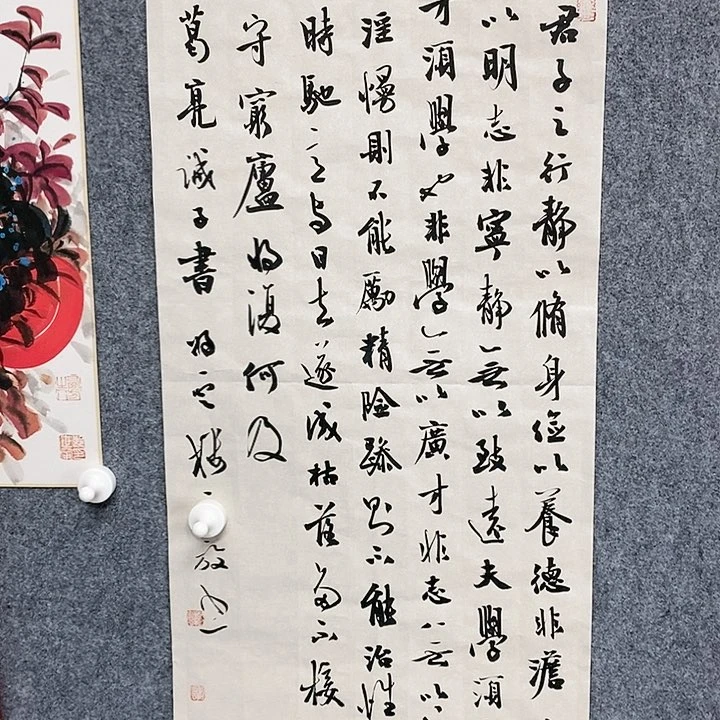 君子之行静以脩身儉以養德非澹
以明志非寧静無以致遠夫學須
才須學也非學無以廣才非志無以
淫慢則不能勵精險躁則不能治性
時馳意与日去遂成枯落多不接
守窮廬將復何及
葛亮誡子書